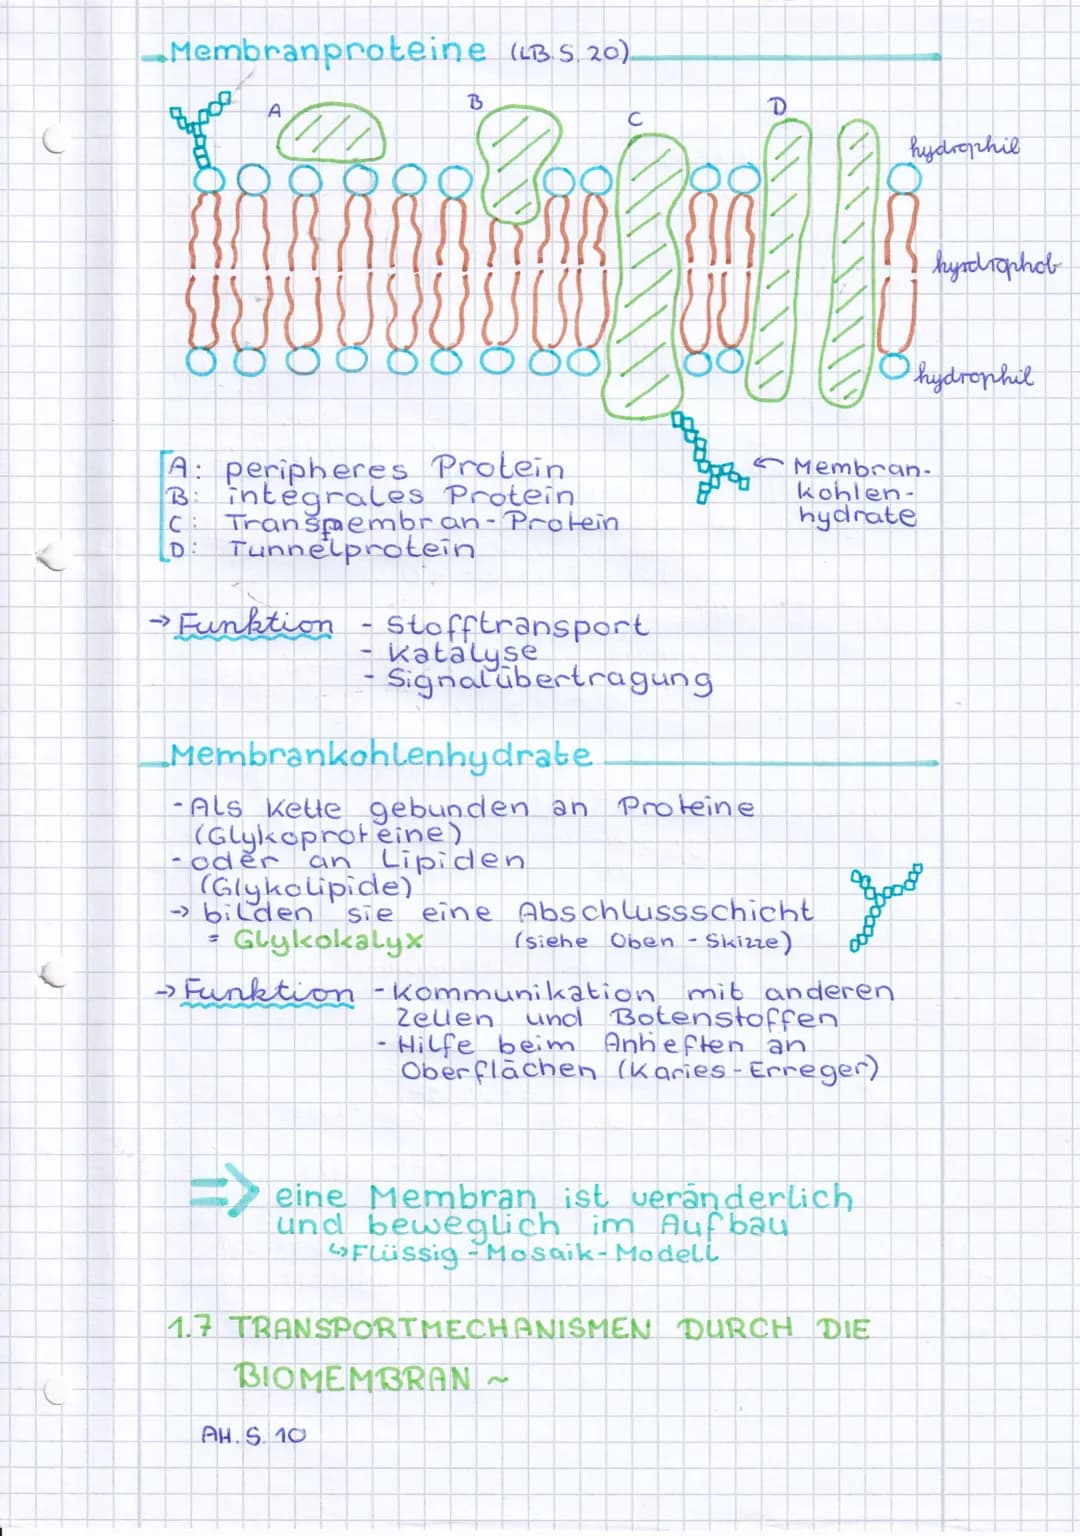 Membranproteine (LB.S. 20)
A
B
C
D
hydrophil
hysdrophob
hydrophil
A: peripheres Protein
B: integrales Protein
C: Transmembran-Protein
D: Tunnelprotein
← Membran-
kohlen-
hydrate
→ Funktion - Stofftransport
- Katalyse
- Signalübertragung
Membrankohlenhydrate
- Als Kette gebunden an Proteine
(Glykoproteine)
- oder an Lipiden
(Glykolipide)
→ bilden sie eine Abschlussschicht
= Glykokalyx (siehe Oben - Skizze)
→ Funktion - Kommunikation mit anderen
Zellen und Botenstoffen
- Hilfe beim Anheften an
Oberflächen (Karies-Erreger)
⇒ eine Membran ist veränderlich
und beweglich im Aufbau
↳ Flüssig-Mosaik-Modell
1.7 TRANSPORTMECHANISMEN DURCH DIE
BIOMEMBRAN ~
AH. S. 10